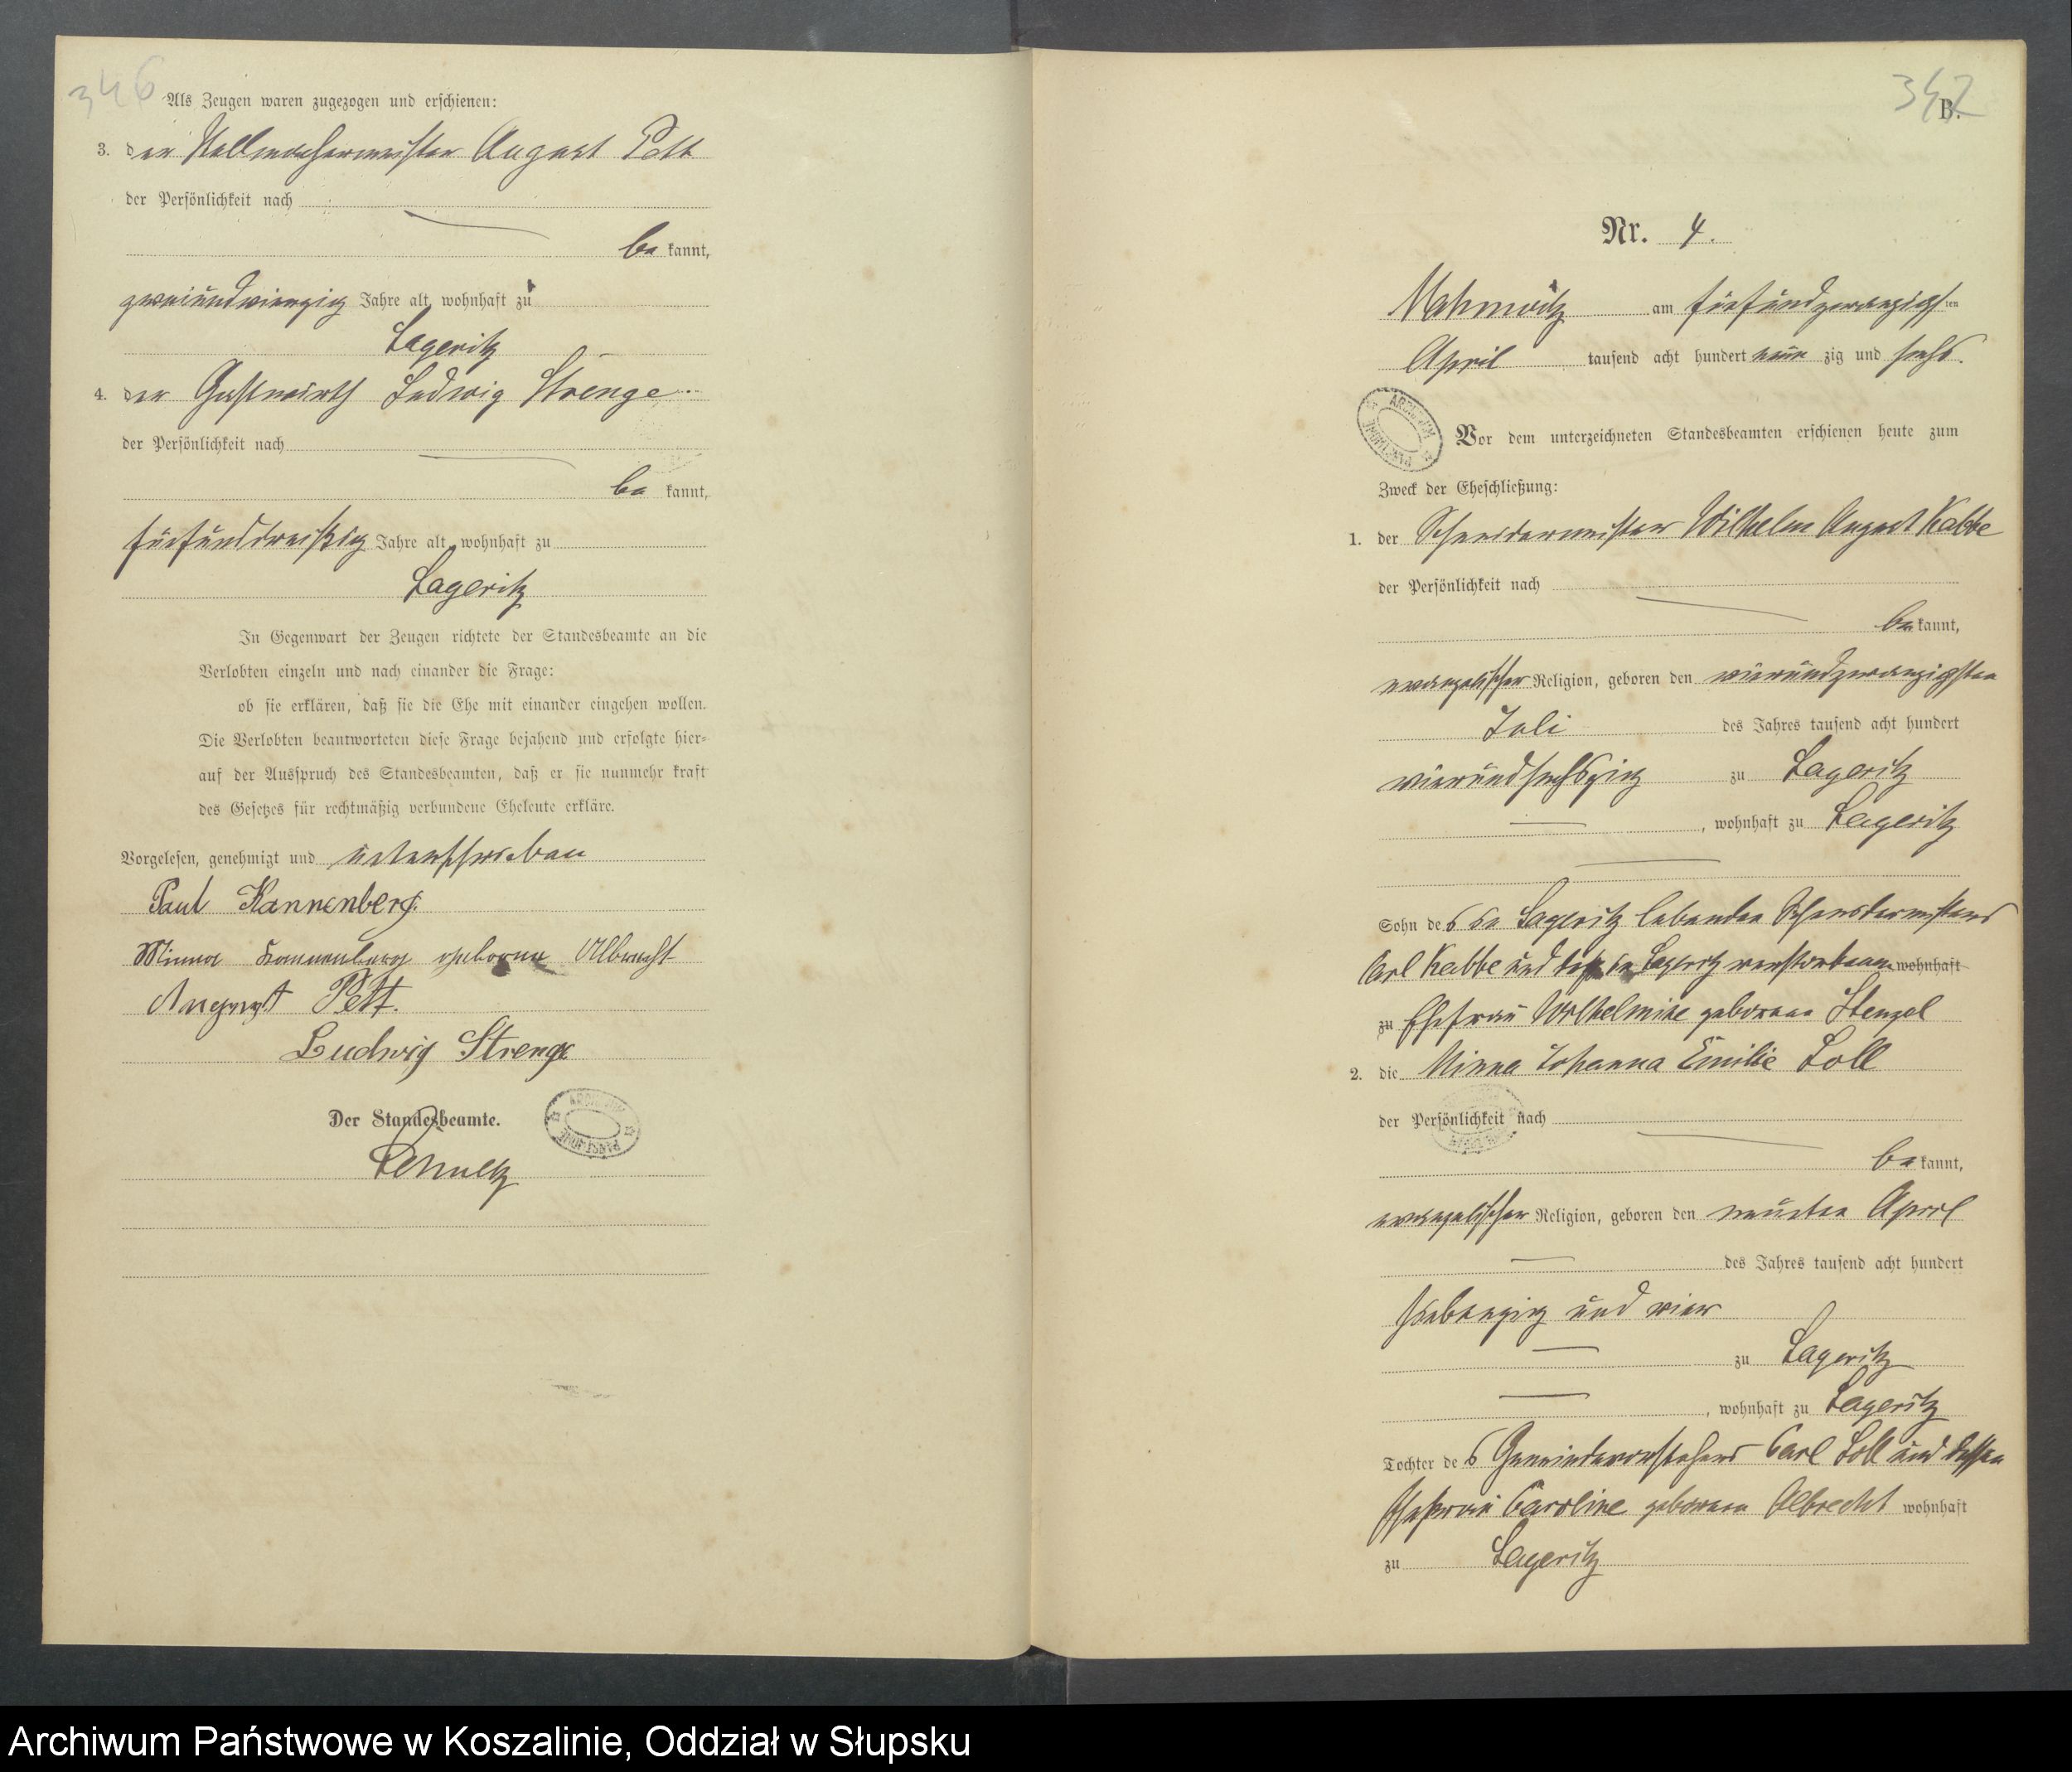 346
Als Zeugen waren zugezogen und erschienen:
3. der Stellmachermeister August Pett
der Persönlichkeit nach
be kannt,
zweiundvierzig Jahre alt, wohnhaft zu
Lageritz
4. der Gastwirth Ludwig Strenge
der Persönlichkeit nach
be kannt,
fünfunddreißig Jahre alt, wohnhaft zu
Lageritz
In Gegenwart der Zeugen richtete der Standesbeamte an die
Verlobten einzeln und nach einander die Frage:
ob sie erklären, daß sie die Ehe mit einander eingehen wollen.
Die Verlobten beantworteten diese Frage bejahend und erfolgte hier-
auf der Ausspruch des Standesbeamten, daß er sie nunmehr kraft
des Gesetzes für rechtmäßig verbundene Eheleute erkläre.
Vorgelesen, genehmigt und unterschrieben
Paul Kannenberg
Minna Kannenberg geborene Albrecht
August Pett.
Ludwig Strenge
Der Standesbeamte.
ARCHIWUM PAŃSTWOWE
347
B.
Nr. 4.
am fünfundzwanzigsten
April tausend acht hundert neun zig und sechs.
ARCHIWUM PAŃSTWOWE
Vor dem unterzeichneten Standesbeamten erschienen heute zum
Zweck der Eheschließung:
1. der Schneidermeister Wilhelm August Kabbe
der Persönlichkeit nach
be kannt,
evangelischer Religion, geboren den vierundzwanzigsten
Juli des Jahres tausend acht hundert
vierundsechszig zu Lageritz
, wohnhaft zu Lageritz
Sohn des in Lageritz lebenden Schneidermeisters
Carl Kabbe und in Lageritz verstorbenen wohnhaft
zu Ehefrau Wilhelmine geborene Stenzel
2. die Minna Johanna Emilie Loll
der Persönlichkeit nach
be kannt,
evangelischer Religion, geboren den neunten April
des Jahres tausend acht hundert
siebenzig und vier
zu Lageritz
, wohnhaft zu Lageritz
Tochter des Gemeindevorstehers Carl Loll und dessen
Ehefrau Caroline geborene Albrecht wohnhaft
zu Lageritz
Archiwum Państwowe w Koszalinie, Oddział w Słupsku